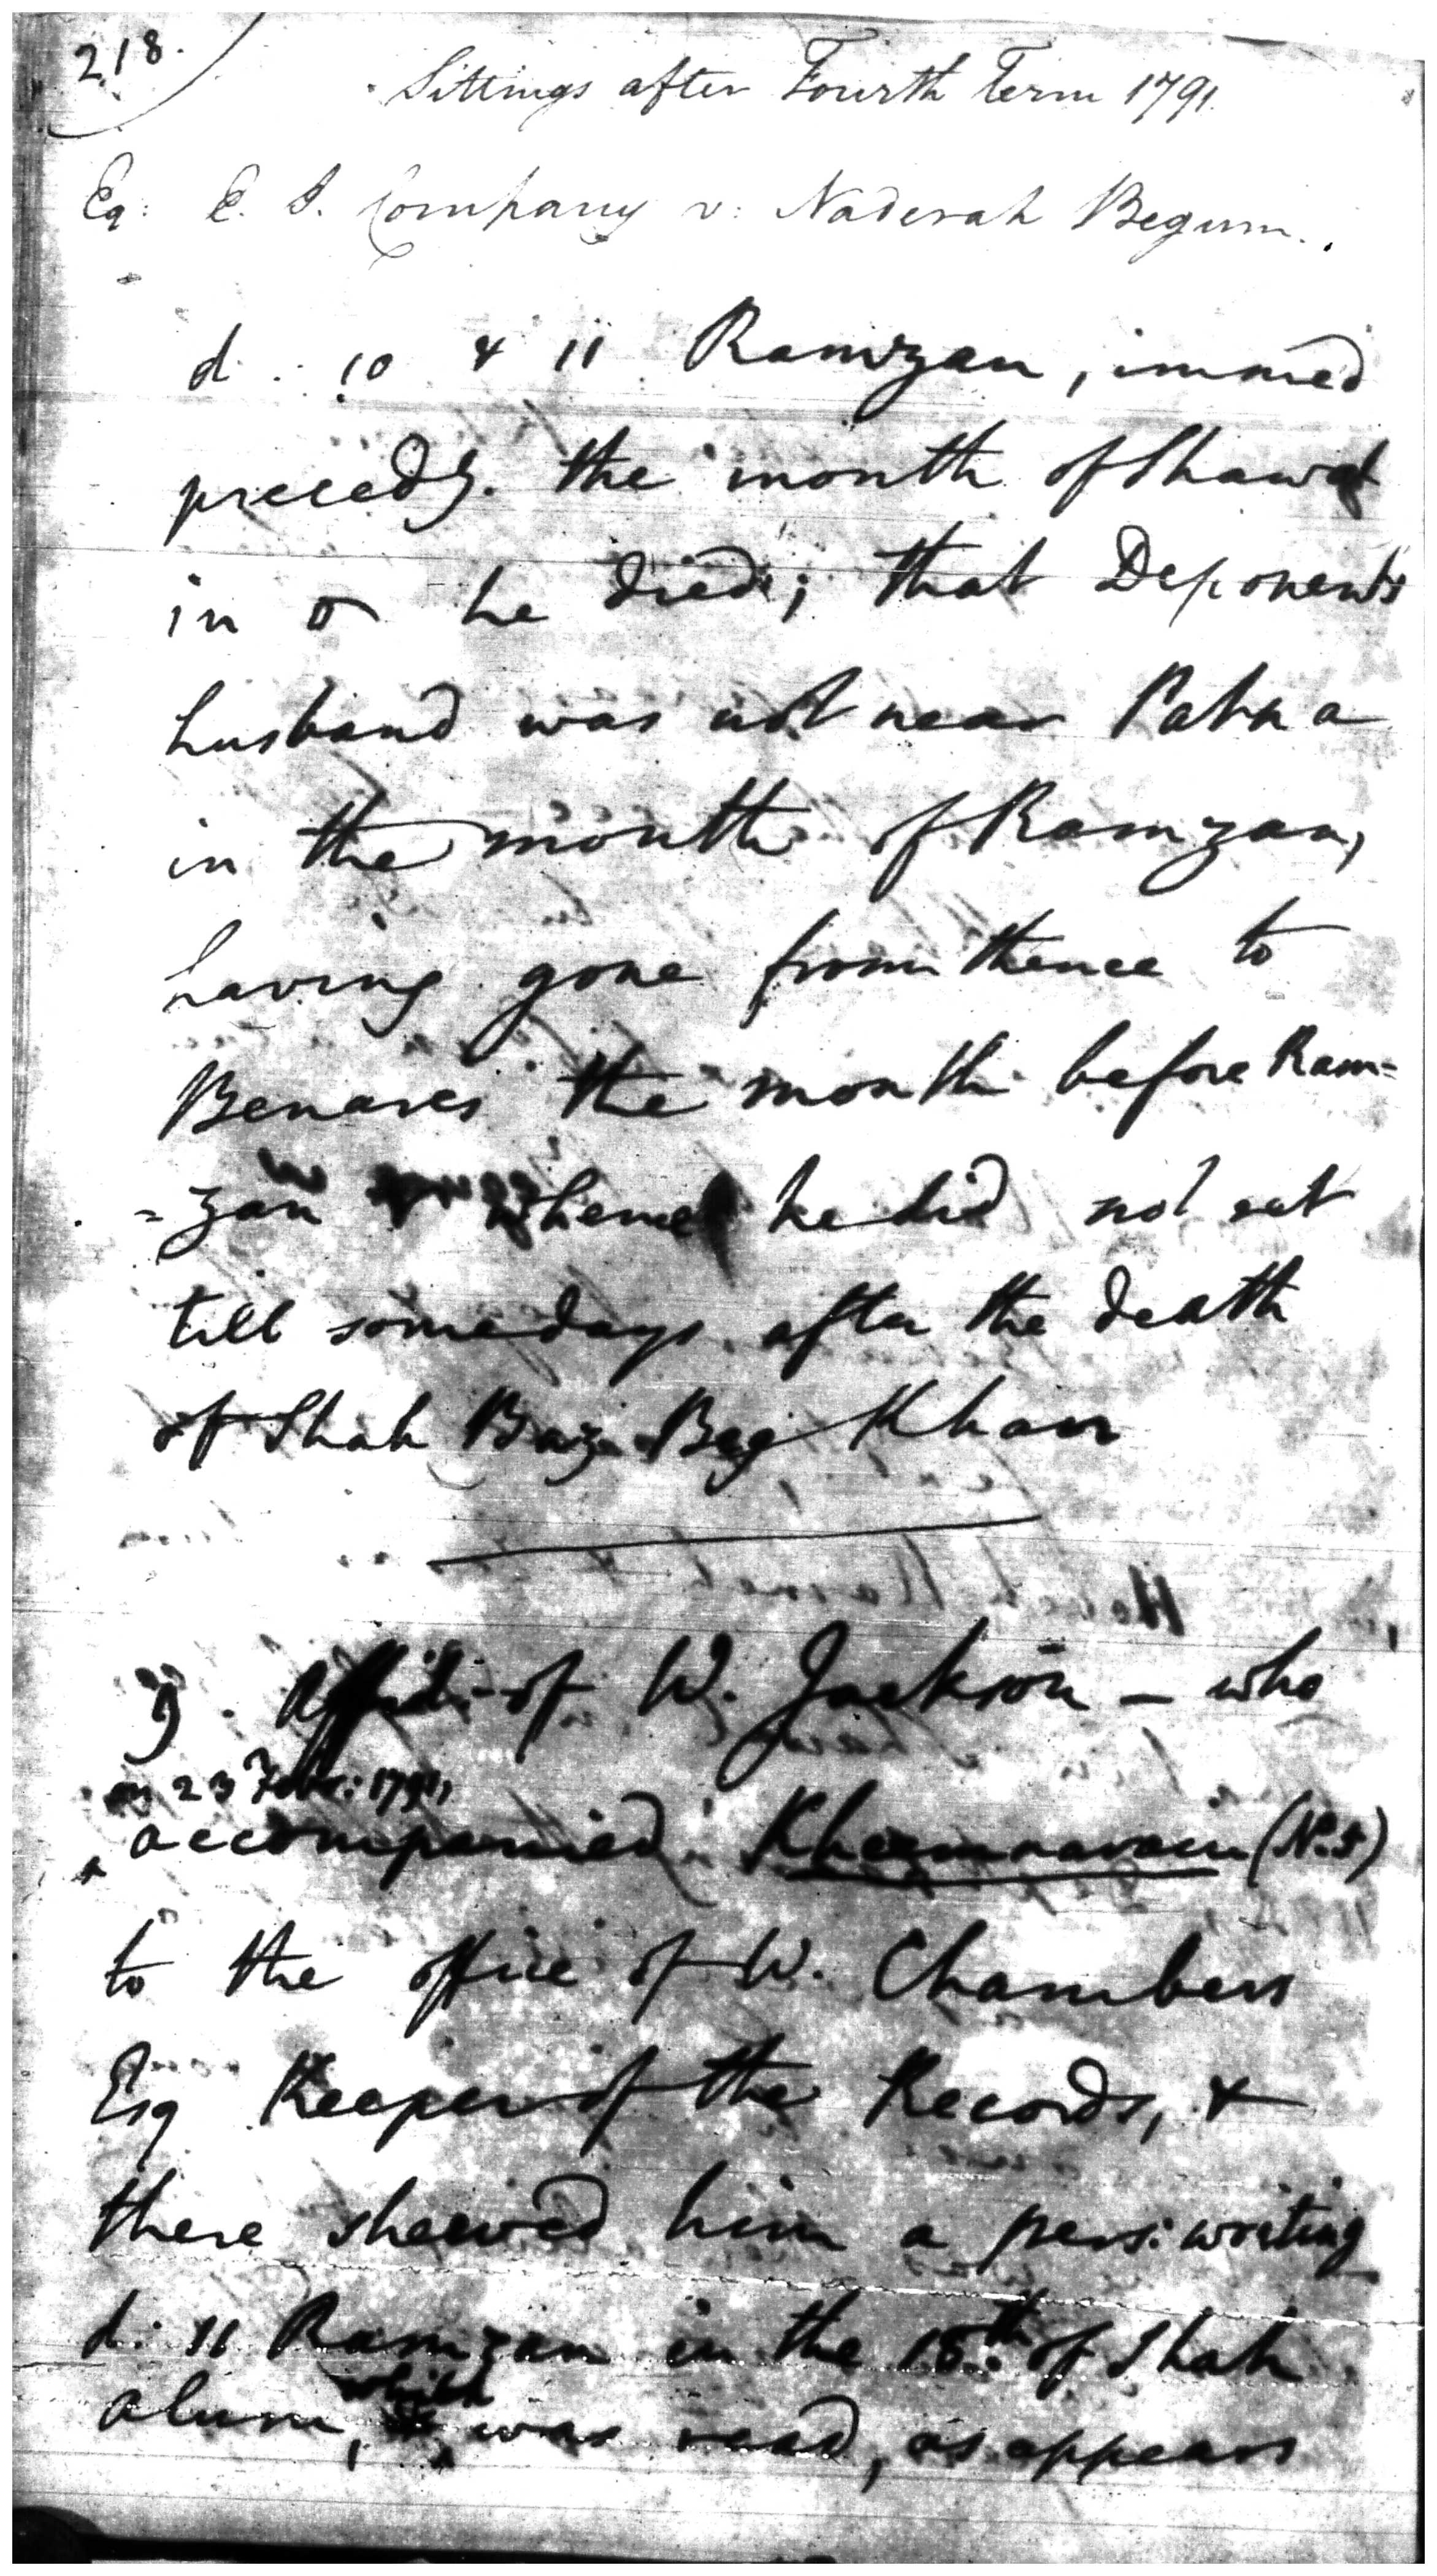 218.
Sittings after Fourth Term 1791.
Eq: E. I. Company v: Naderah Begum.
d. 10 & 11 Ramzan, immed
precedg. the month of Shawal
in he died; that Deponents
husband was not near Patna
in the month of Ramzan,
having gone from thence to
Benares the month before Ram=
=zan whence he did not set
till some days after the death
of Shah Baz Beg Khan
9. Affid: of W. Jackson – who
on 23 Febr: 1791,
accompanied Kheemnarain (N.5)
to the office of W. Chambers
Esq Keeper of the Records, &
there shewed him a pers: writing
d: 11 Ramzan in the 18th of Shah
alum, which was read, as appears